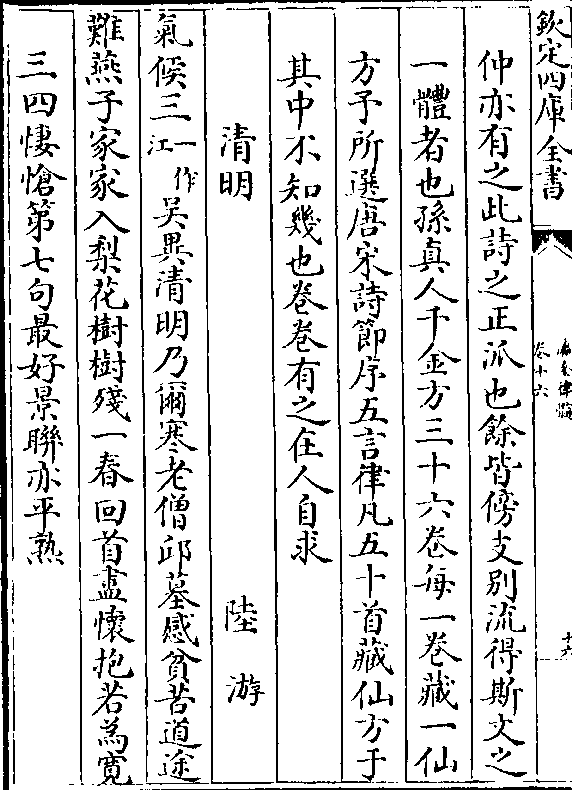 欽定四庫全書
瀛奎律髓
卷十六
十六
仲亦有之此詩之正派也餘皆傍支别流得斯文之
一體者也孫真人千金方三十六卷每一卷藏一仙
方予所選唐宋詩節序五言律凡五十首藏仙方于
其中不知幾也卷卷有之在人自求
清明 陸游
氣候三一作江吳異清明乃爾寒老僧邱墓感貧苦道途
難燕子家家入梨花樹樹殘一春回首盡懷抱若為寛
三四悽愴第七句最好景聯亦平熟